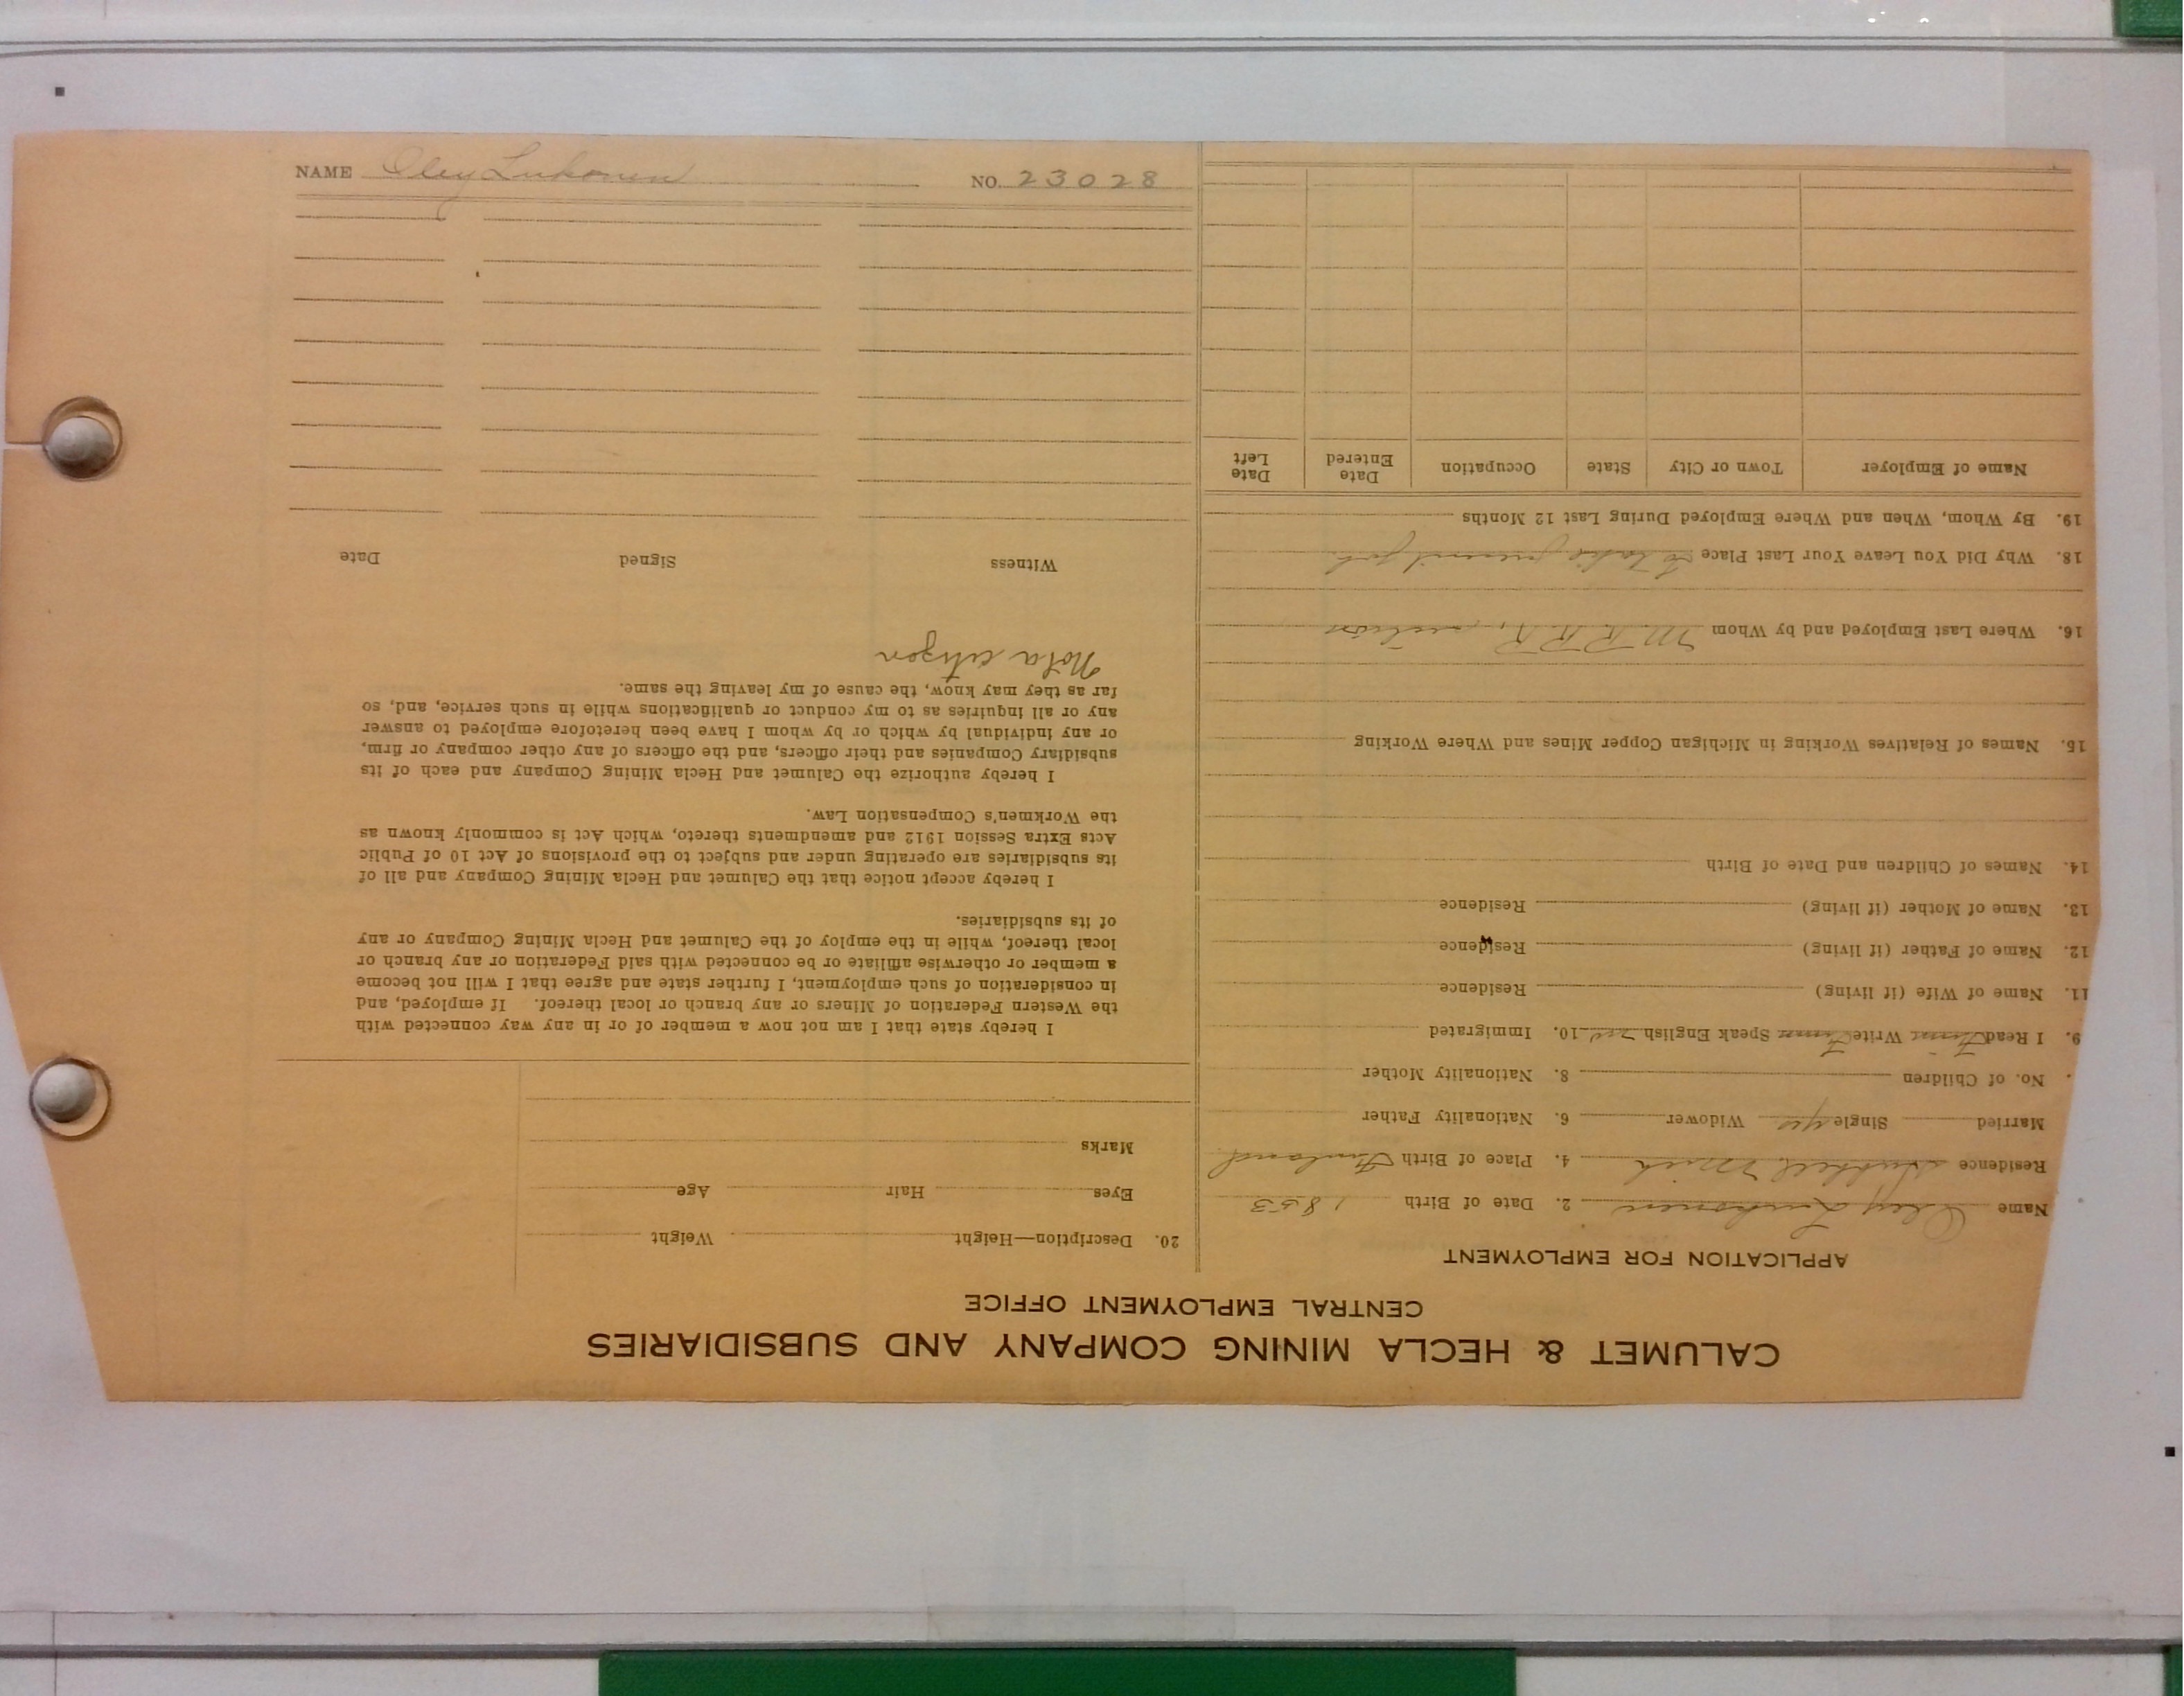 NAME Oley Lukonen NO. 23028
CALUMET & HECLA MINING COMPANY AND SUBSIDIARIES
CENTRAL EMPLOYMENT OFFICE
APPLICATION FOR EMPLOYMENT
Name Oley Lukonen 2. Date of Birth 1853
Residence Hubbell Mich 4. Place of Birth Finland
Married Single yes Widower 6. Nationality Father
No. of Children 8. Nationality Mother
9. I Read Finn Write Finn Speak English no 10. Immigrated
11. Name of Wife (if living) Residence
12. Name of Father (if living) Residence
13. Name of Mother (if living) Residence
14. Names of Children and Date of Birth
15. Names of Relatives Working in Michigan Copper Mines and Where Working
16. Where Last Employed and by Whom M. R. R. R., section
18. Why Did You Leave Your Last Place to take present job.
19. By Whom, When and Where Employed During Last 12 Months
Name of Employer Town or City State Occupation Date Entered Date Left
20. Description—Height Weight
Eyes Hair Age
Marks
I hereby state that I am not now a member of or in any way connected with
the Western Federation of Miners or any branch or local thereof. If employed, and
in consideration of such employment, I further state and agree that I will not become
a member or otherwise affiliate or be connected with said Federation or any branch or
local thereof, while in the employ of the Calumet and Hecla Mining Company or any
of its subsidiaries.
I hereby accept notice that the Calumet and Hecla Mining Company and all of
its subsidiaries are operating under and subject to the provisions of Act 10 of Public
Acts Extra Session 1912 and amendments thereto, which Act is commonly known as
the Workmen's Compensation Law.
I hereby authorize the Calumet and Hecla Mining Company and each of its
subsidiary Companies and their officers, and the officers of any other company or firm,
or any individual by which or by whom I have been heretofore employed to answer
any or all inquiries as to my conduct or qualifications while in such service, and, so
far as they may know, the cause of my leaving the same.
Not a citizen
Witness Signed Date